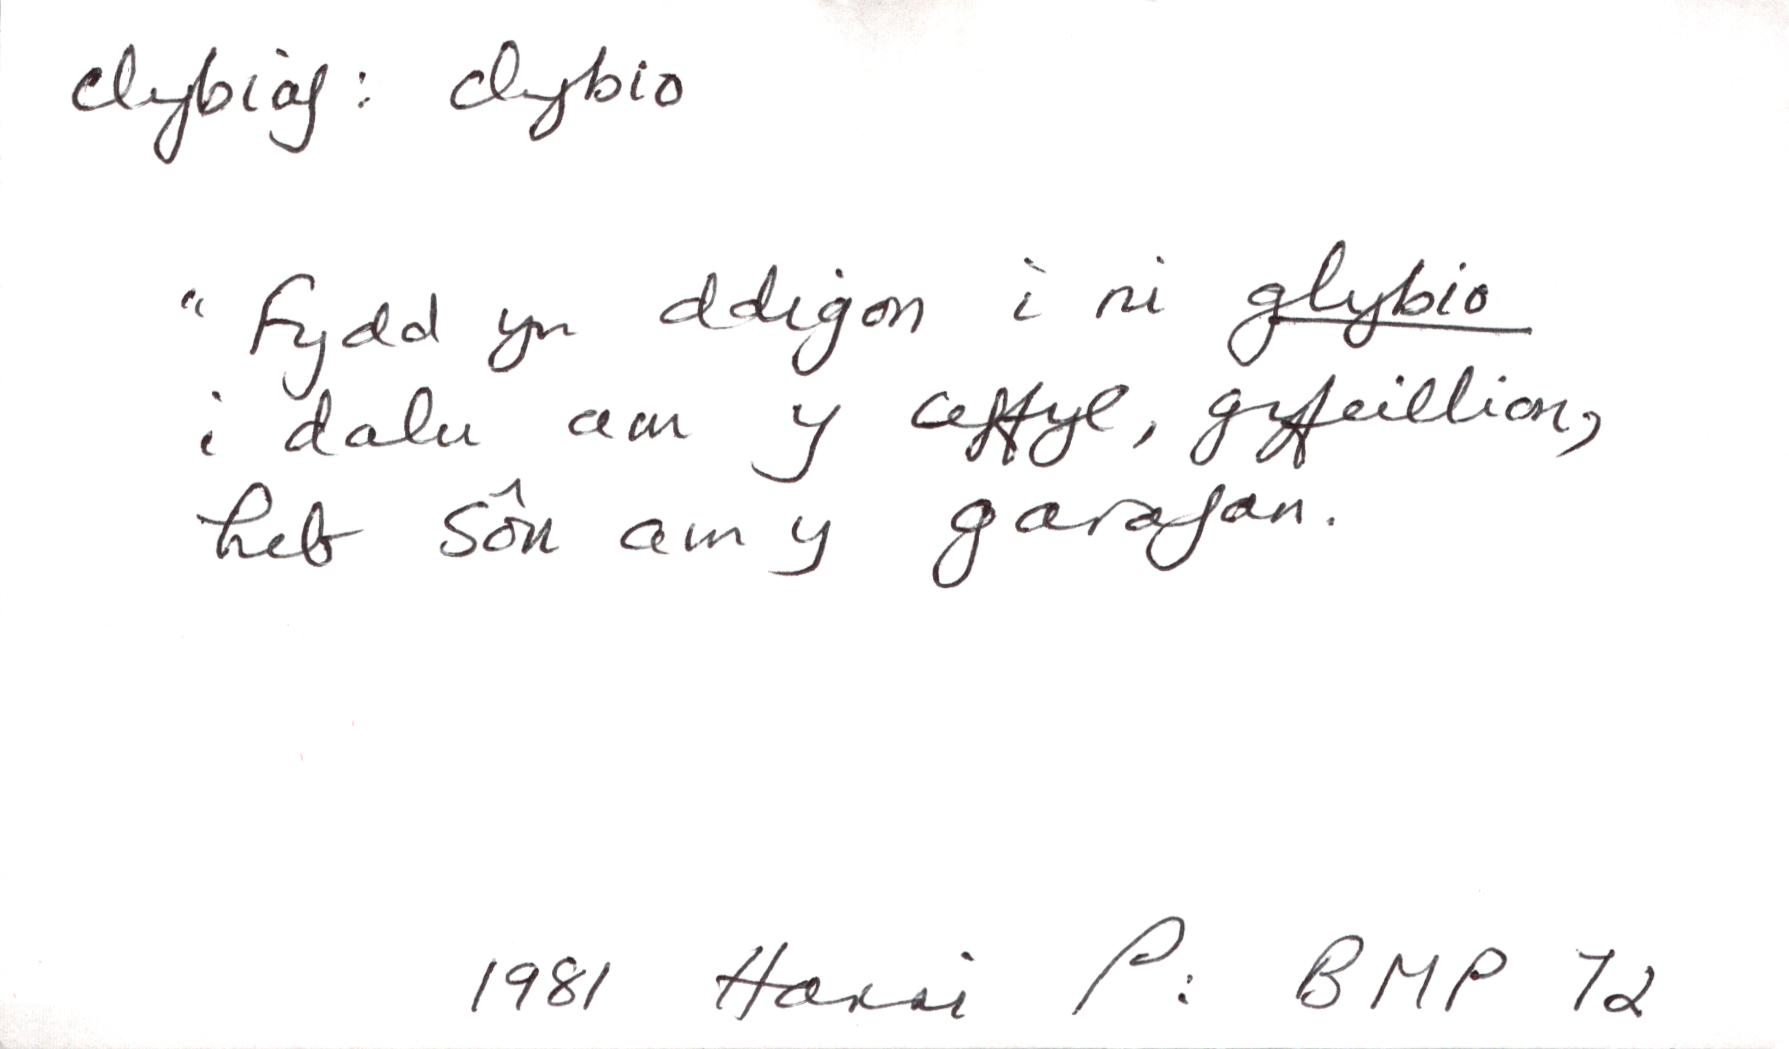 clybiaf: clybio
"Fydd yn ddigon i ni glybio
i dalu am y ceffyl, gyfeillion,
heb sôn am y garafan.
1981 Harri P: BMP 72